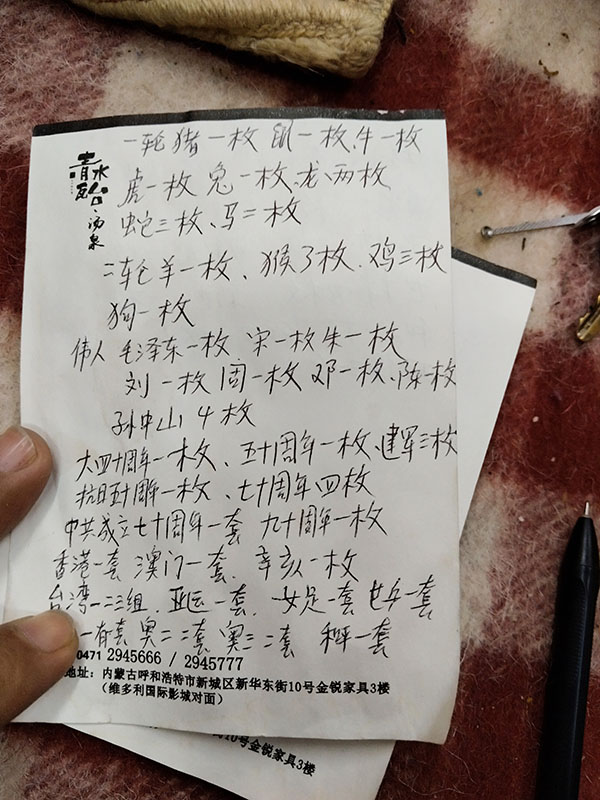 一轮猪一枚 鼠一枚、牛一枚
青水
台·汤泉
虎一枚 兔一枚、龙、两枚
蛇三枚、马二枚
二轮羊一枚、猴3枚、鸡三枚
狗一枚
伟人 毛泽东一枚 宋一枚朱一枚
刘一枚 周一枚 邓一枚、陈一枚
孙中山 4枚
大四十周年一枚、五十周年一枚、建军三枚
抗日五十周年一枚、七十周年四枚
中共成立七十周年一套 九十周年一枚
香港一套 澳门一套、辛亥一枚
台湾一二三组、亚运一套、女足一套 一套
一有套 奥二二套 奥三二套 和平一套
0471 2945666 / 2945777
地址：内蒙古呼和浩特市新城区新华东街10号金锐家具3楼
（维多利国际影城对面）
10号金锐家具3楼